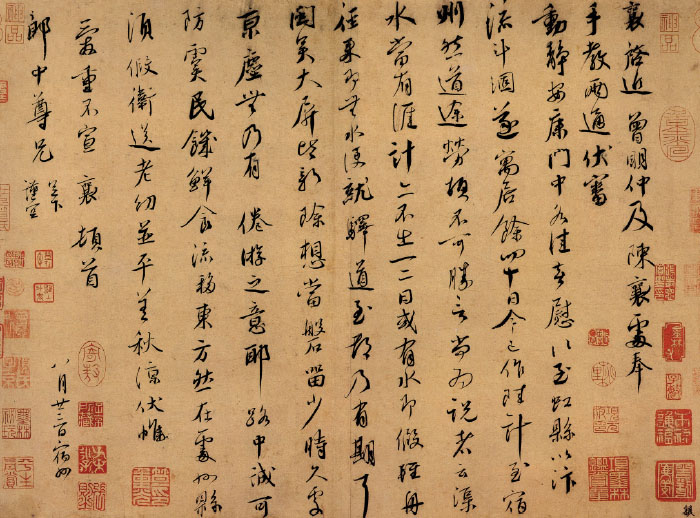 襄啓近曾明仲及陳襄處奉
手教兩通伏審
動靜安康門中各佳喜慰〻至虹縣以汴
流斗涸遂寓居餘四十日今已作陸計至宿
州然道途勞頓不可勝言尚為說者云渠
水當有涯計亦不出一二日或有水即假輕舟
徑來即無水便就驛道至都乃有期耳
聞美大屏皆新除想當磐留少時久處
京塵無乃有倦游之意耶路中誠可
防虞民饑鮮食流移東方然在處州縣
須假衛送老幼並平善秋涼伏惟
愛重不宣襄頓首
郎中尊兄
足下
謹空
八月廿三日宿州